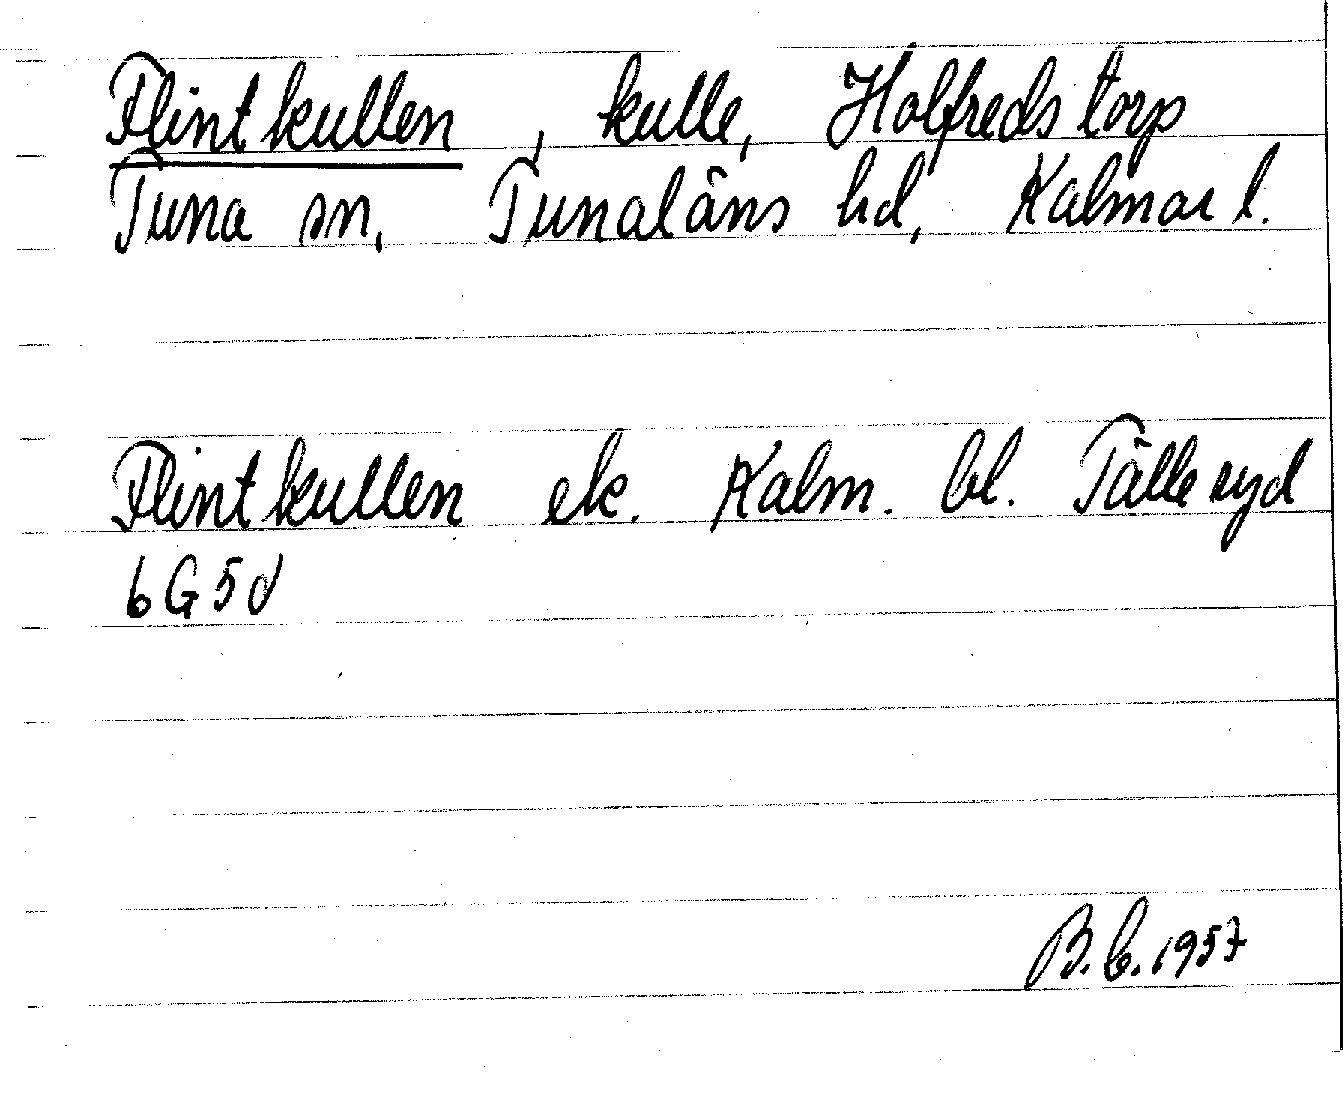 Flintkullen, kulle, Holfredstorp
Tuna sn, Tunaläns hd, Kalmar l.
Flintkullen ek. Kalm. bl. Tälleryd
6G5d
B.C. 1957